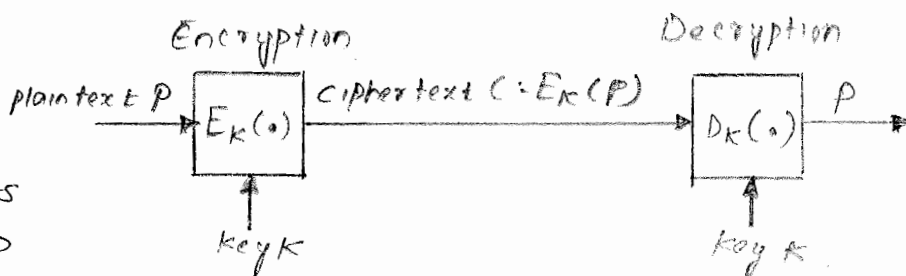 Encryption Decryption
plaintext P Ciphertext C = E_K(P) P
E_K(.) D_K(.)
S
key K key K